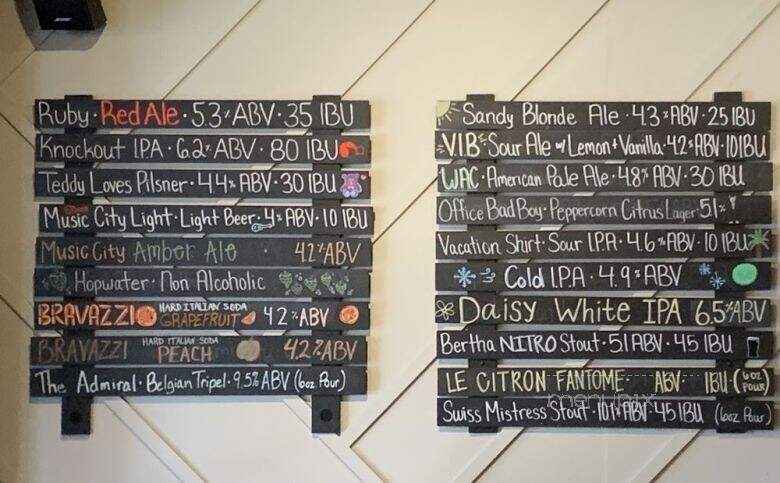 Ruby · Red Ale · 5.3% ABV · 35 IBU
Knockout IPA · 6.2% ABV · 80 IBU
Teddy Loves Pilsner · 4.4% ABV · 30 IBU
Music City Light · Light Beer · 4% ABV · 10 IBU
Music City Amber Ale 4.2% ABV
Hopwater · Non Alcoholic
BRAVAZZI HARD ITALIAN SODA GRAPEFRUIT 4.2% ABV
BRAVAZZI HARD ITALIAN SODA PEACH 4.2% ABV
The Admiral · Belgian Tripel · 9.5% ABV (6oz Pour)
Sandy Blonde Ale · 4.3% ABV · 25 IBU
VIB · Sour Ale w/ Lemon + Vanilla · 4.2% ABV · 10 IBU
WAC · American Pale Ale · 4.8% ABV · 30 IBU
Office Bad Boy · Peppercorn Citrus Lager 5.1%
Vacation Shirt · Sour I.P.A. · 4.6% ABV · 10 IBU
Cold I.P.A · 4.9% ABV
Daisy White IPA 6.5% ABV
Bertha NITRO Stout · 5.1 ABV · 45 IBU
LE CITRON FANTOME · ABV · IBU (6oz POUR)
Swiss Mistress Stout · 10.1% ABV · 45 IBU (6oz Pour)
menupix